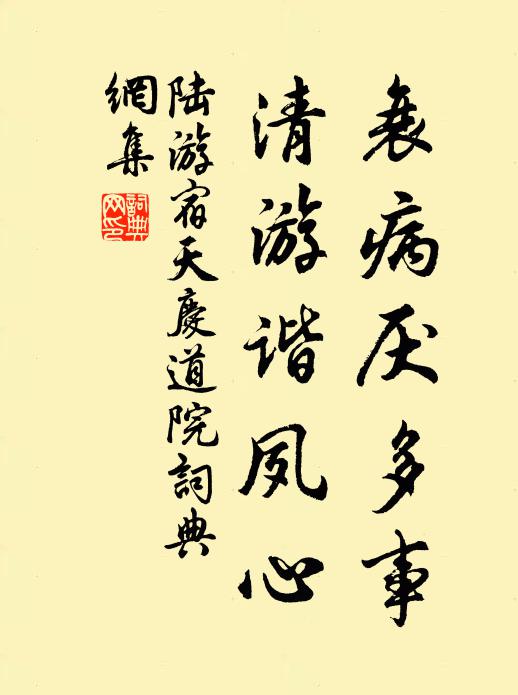 衰病厌多事
清游谐夙心
陆游宿天慶道院詞典
網集
詞典
网印